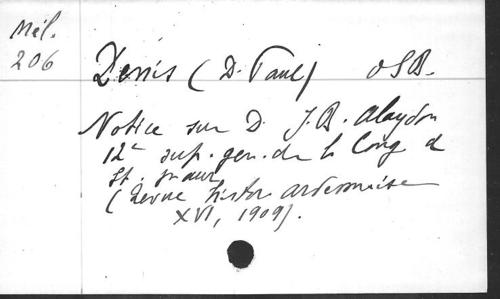 Mél.
206
Denis (D. Paul) OSB.
Notice sur D. J.B. Alaydon
12e sup. gen. de la Cong de
St. Maur
(Revue histor ardennaise
XVI, 1909).